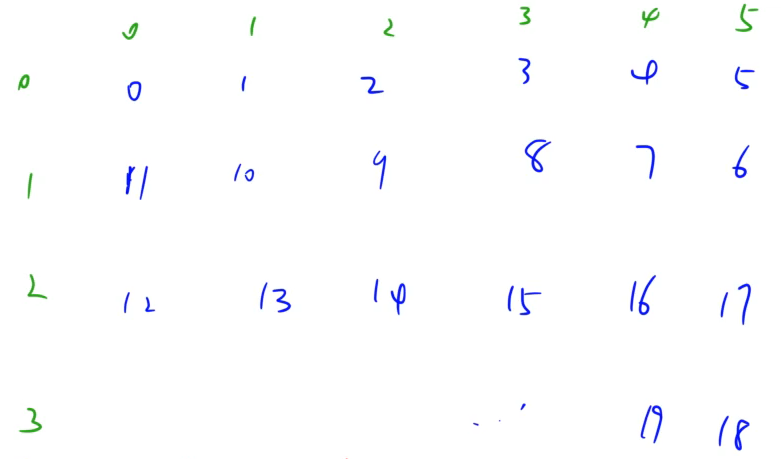 0 1 2 3 4 5
0 0 1 2 3 4 5
1 11 10 9 8 7 6
2 12 13 14 15 16 17
3 19 18